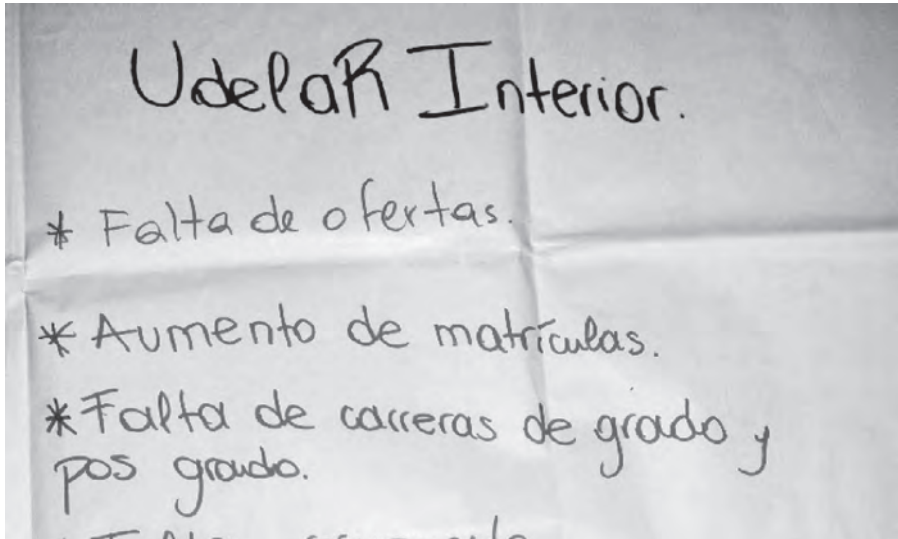 UdelaR Interior.
* Falta de ofertas.
* Aumento de matrículas.
* Falta de carreras de grado y
pos grado.